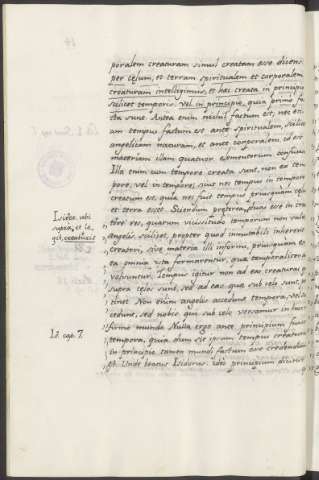 poralem creaturam simul creatam esse dicens
per cęlum, et terram spiritualem et corporalem
creaturam intelligimus, et hæc creata in principio
scilicet temporis. Vel in principio, quia primo fa-
cta sunt. Antea enim nihil factum est, nec eti
am tempus factum est ante spiritualem, scilicet
angelicam naturam, et ante corporalem id est
materiam illam quatuor elementorum confusam
Illa enim cum tempore creata sunt, non ex tem
pore, vel in tempore, sicut nec tempus in tempore
creatum est, quia non fuit tempus priusquam cęlum
et terra esset. Scierdum preterea, duas esse in crea
tore res, quarum vicissitudo temporum non valet
angelis scilicet, propter quod inmutabili inherent
creatori, sive materia illi informi, priusquam ex
ea omnia ista formarentur, quæ temporaliter
volvuntur. Tempus igitur non ad eas creaturas quæ
supra cęlos sunt, sed ad eas quæ sub cęlo sunt, per
tinet. Non enim angelis accedunt tempora, vel suc
cedunt, sed nobis qui sub cęlo versamur in hoc in
firmo mundo. Nulla ergo ante principium fuere
tempora, quia dum est ipsum tempus creatura
in principio tamen mundi factum esse credendum
est. Unde beatus Isidorus. Ideo principium dicitur
Isidor. ubi
supra, et le
git,
Id. cap. 7.